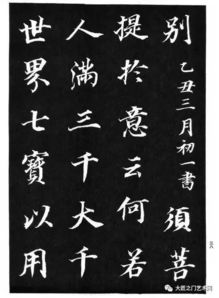 别
乙丑三月初一书
须菩
提於意云何若
人满三千大千
世界七寶以用
大匠之门艺术网